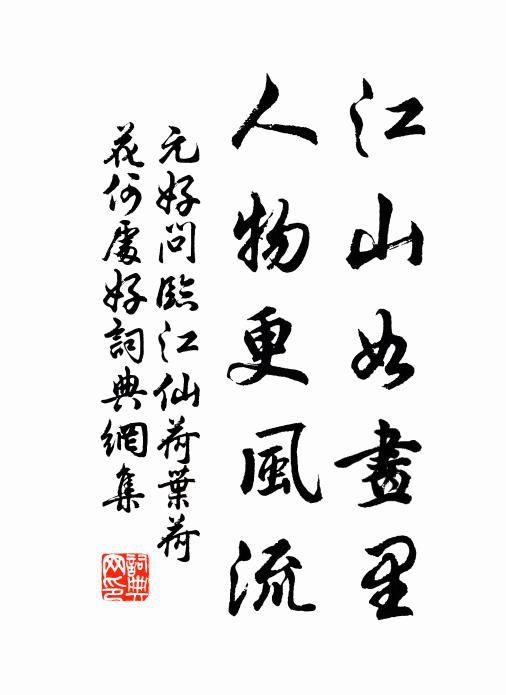 江山如畫里
人物更風流
元好問臨江仙荷葉荷
花何處好詞典網集
詞典
网印